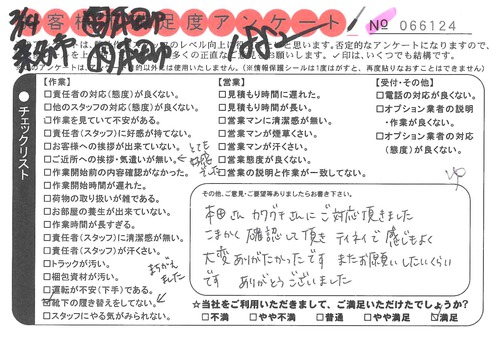 お客様満足度アンケート
No 066124
3/4
✓印は、いくつでも結構です。
(※情報保護シールは1度はがすと、再度貼りなおすことはできません)
チェックリスト
【作業】
□責任者の対応(態度)が良くない。
□他のスタッフの対応(態度)が良くない。
□作業を見ていて不安がある。
□責任者(スタッフ)に好感が持てない。
□お客様への挨拶が出来ていない。
□ご近所への挨拶・気遣いが無い。
□作業開始前の内容確認がなかった。
□作業開始時間が遅れた。
□荷物の取り扱いが雑である。
□お部屋の養生が出来ていない。
□作業時間が長すぎる。
□責任者(スタッフ)に清潔感が無い。
□責任者(スタッフ)が汗くさい。
□トラックが汚い。
□梱包資材が汚い。
□運転が不安(下手)である。
☑靴下の履き替えをしてない。
□スタッフにやる気がみられない。
まちがえ
ました
【営業】
□見積もり時間に遅れた。
□見積もり時間が長い。
□営業マンに清潔感が無い。
□営業マンが煙草くさい。
□営業マンが汗くさい。
□営業態度が良くない。
□営業の説明と作業が一致してない。
【受付・その他】
□電話の対応が良くない。
□オプション業者の説明
・作業が良くない。
□オプション業者の対応
(態度)が良くない。
その他、ご意見・ご要望等ありましたらお書き下さい。
本田さん カワグチさんにご対応頂きました
こまかく確認して頂き テイネイで感じもよく
大変ありがたかったです またお願いしたいくらい
です ありがとうございました
☆当社をご利用いただきまして、ご満足いただけたでしょうか?
□不満 □やや不満 □普通 □やや満足 ☑満足